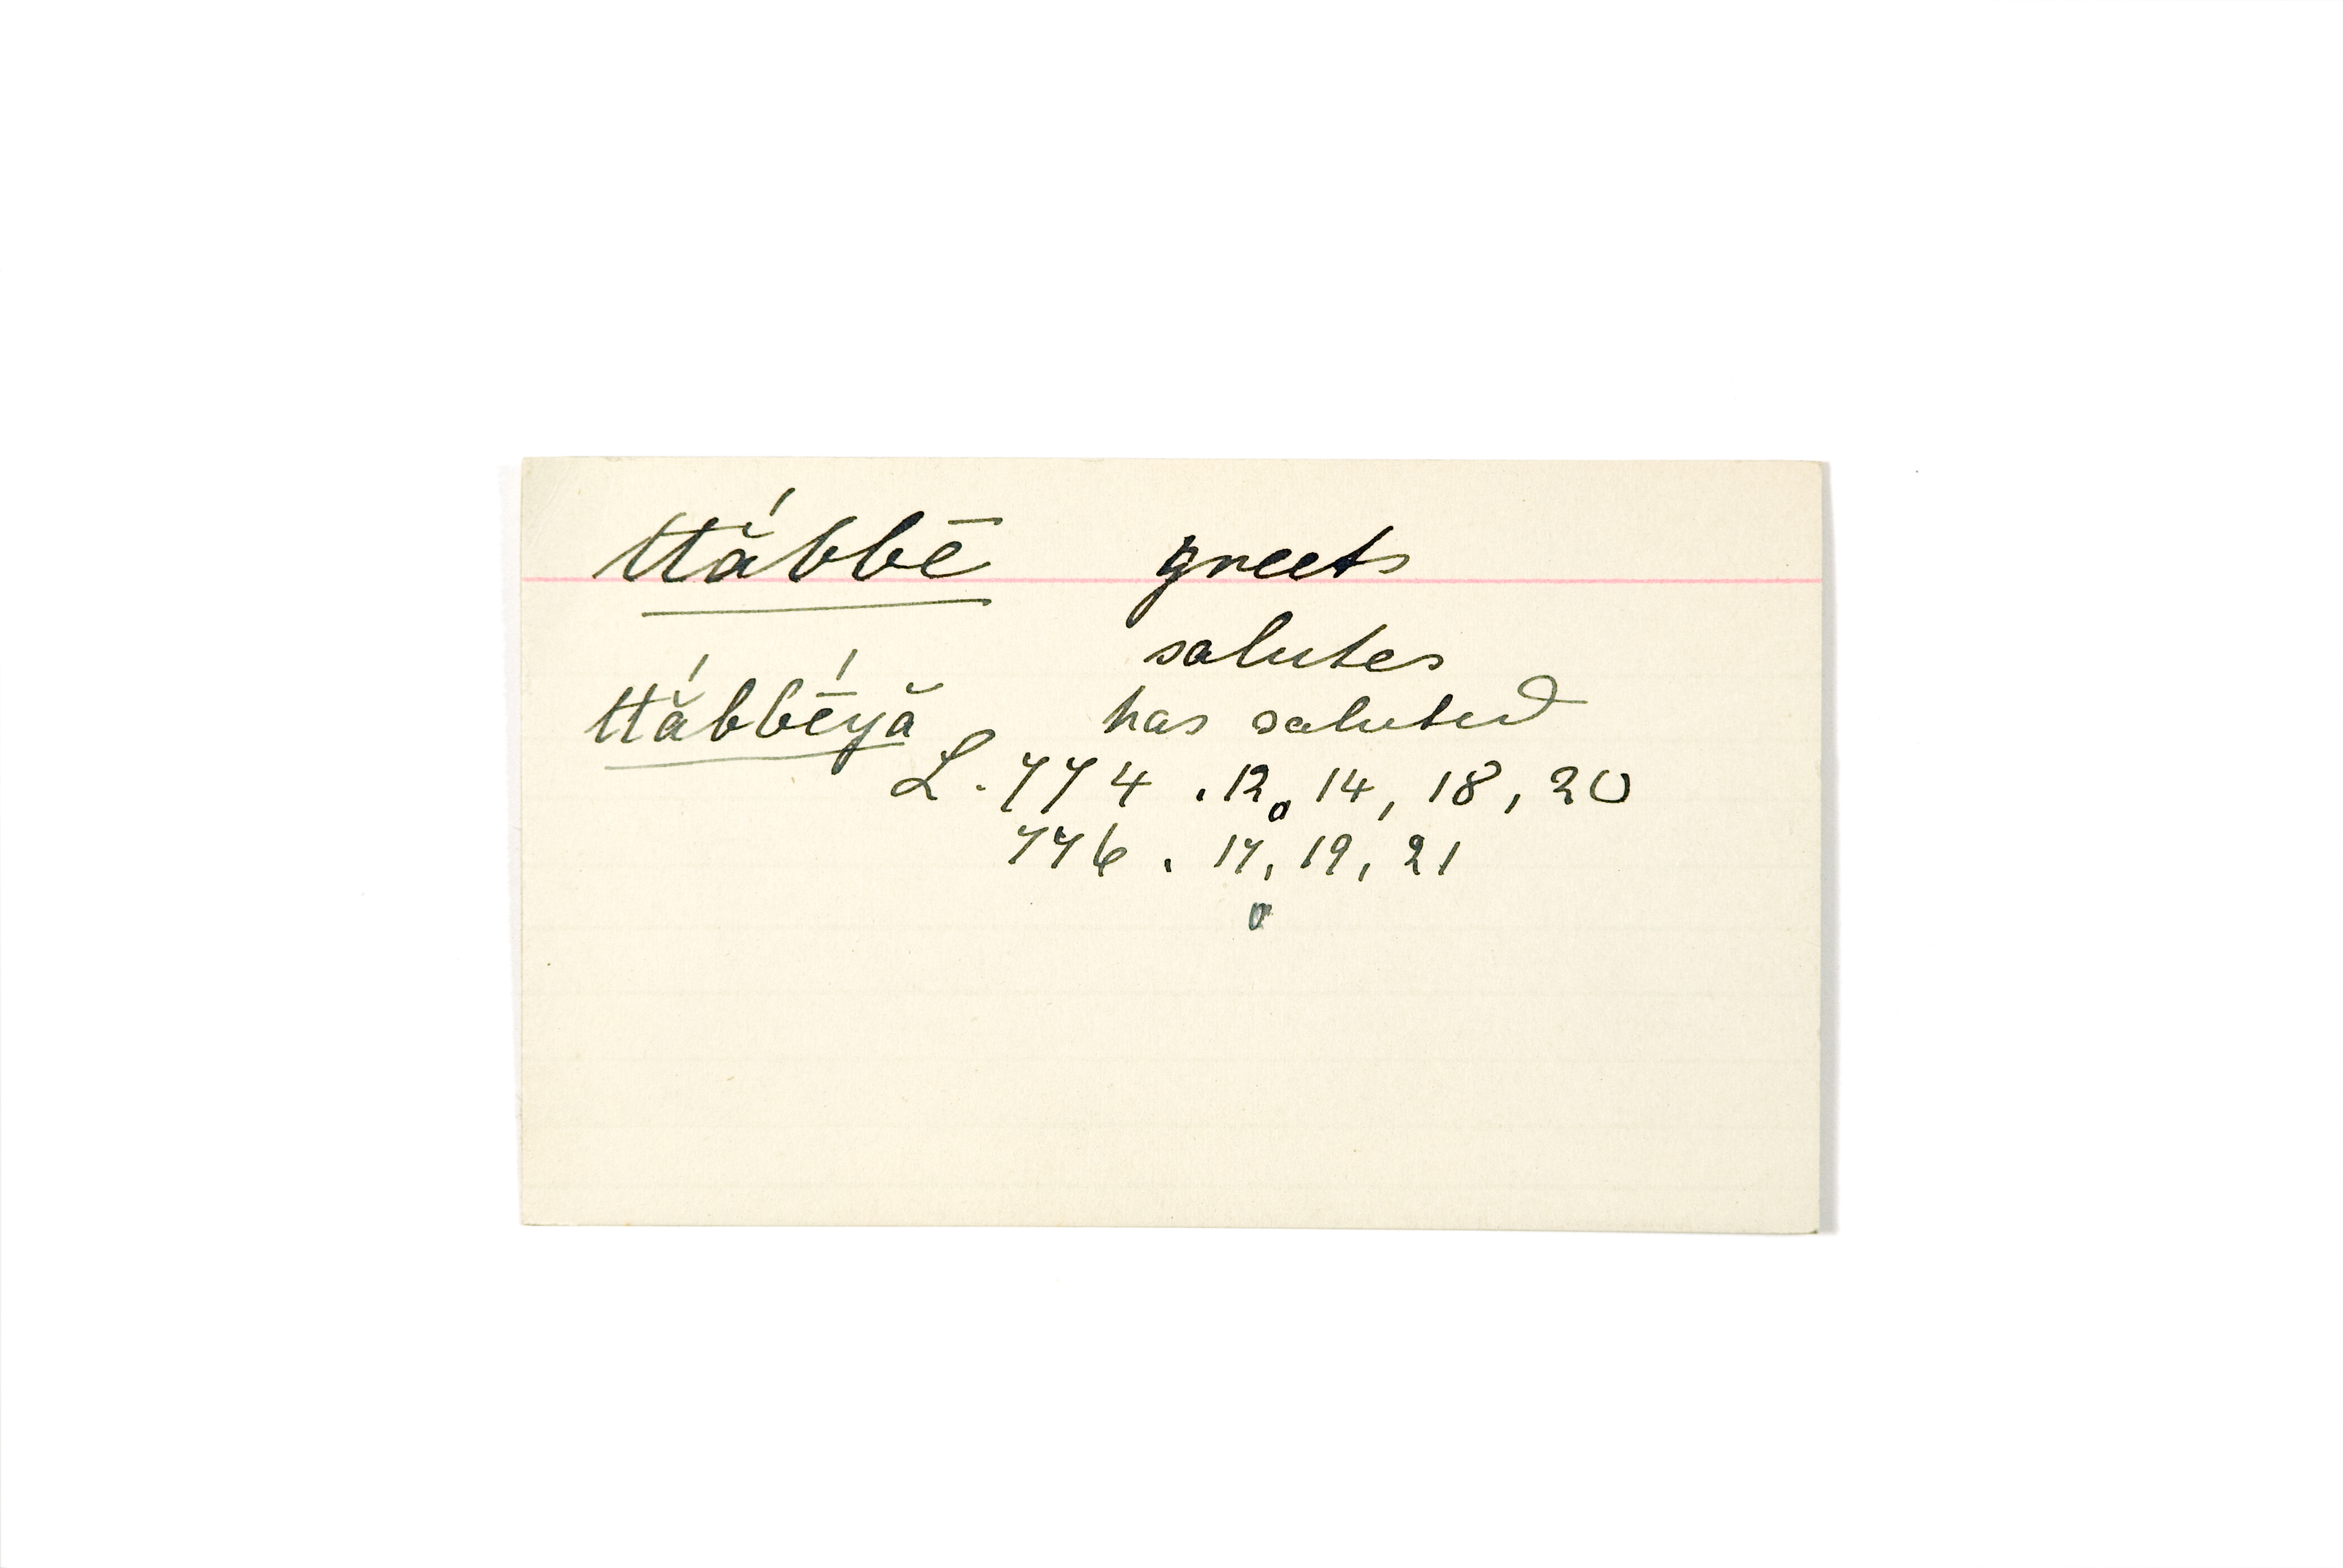 ttắbbē greets
salutes
ttắbbḗyă has saluted
L. 774 . 12, 14, 18, 20
776 . 17, 19, 21